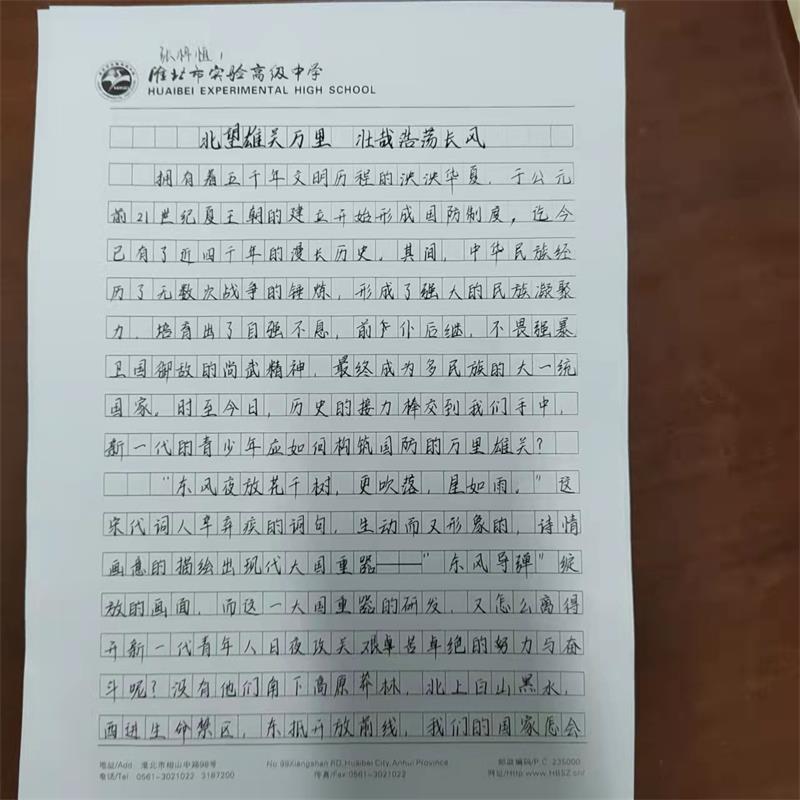 淮北市实验高级中学
HUAIBEI EXPERIMENTAL HIGH SCHOOL
北望雄关万里 壮哉浩荡长风
拥有着五千年文明历程的泱泱华夏，于公元
前21世纪夏王朝的建立开始形成国防制度，迄今
已有了近四千年的漫长历史。其间，中华民族经
历了无数次战争的锤炼，形成了强大的民族凝聚
力，培育出了自强不息，前仆后继，不畏强暴
卫国御敌的尚武精神，最终成为多民族的大一统
国家。时至今日，历史的接力棒交到我们手中，
新一代的青少年应如何构筑国防的万里雄关？
“东风夜放花千树，更吹落，星如雨。”这
宋代词人辛弃疾的词句，生动而又形象的，诗情
画意的描绘出现代大国重器——“东风导弹”绽
放的画面，而这一大国重器的研发，又怎么离得
开新一代青年人日夜攻关艰卓苦卓绝的努力与奋
斗呢？没有他们南下高原莽林，北上白山黑水，
西进生命禁区，东抵开放前线，我们的国家怎会
地址/Add 淮北市相山中路98号 No 98Xiangshan RD,Huaibei City,Anhui Province 邮政编码/P.C 235000
电话/Tel 0561-3021022 3187200 传真/Fax:0561-3021022 网址/Http:www.HBSZ.cn/